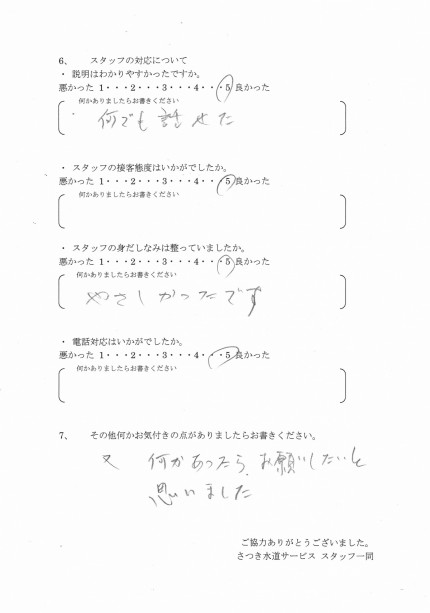 6、 スタッフの対応について
・ 説明はわかりやすかったですか。
悪かった 1・・・2・・・3・・・4・・・5 良かった
何かありましたらお書きください
何でも話せた
・ スタッフの接客態度はいかがでしたか。
悪かった 1・・・2・・・3・・・4・・・5 良かった
何かありましたらお書きください
・ スタッフの身だしなみは整っていましたか。
悪かった 1・・・2・・・3・・・4・・・5 良かった
何かありましたらお書きください
やさしかったです
・ 電話対応はいかがでしたか。
悪かった 1・・・2・・・3・・・4・・・5 良かった
何かありましたらお書きください
7、 その他何かお気付きの点がありましたらお書きください。
又 何かあったら、お願いしたいと
思いました
ご協力ありがとうございました。
さつき水道サービス スタッフ一同